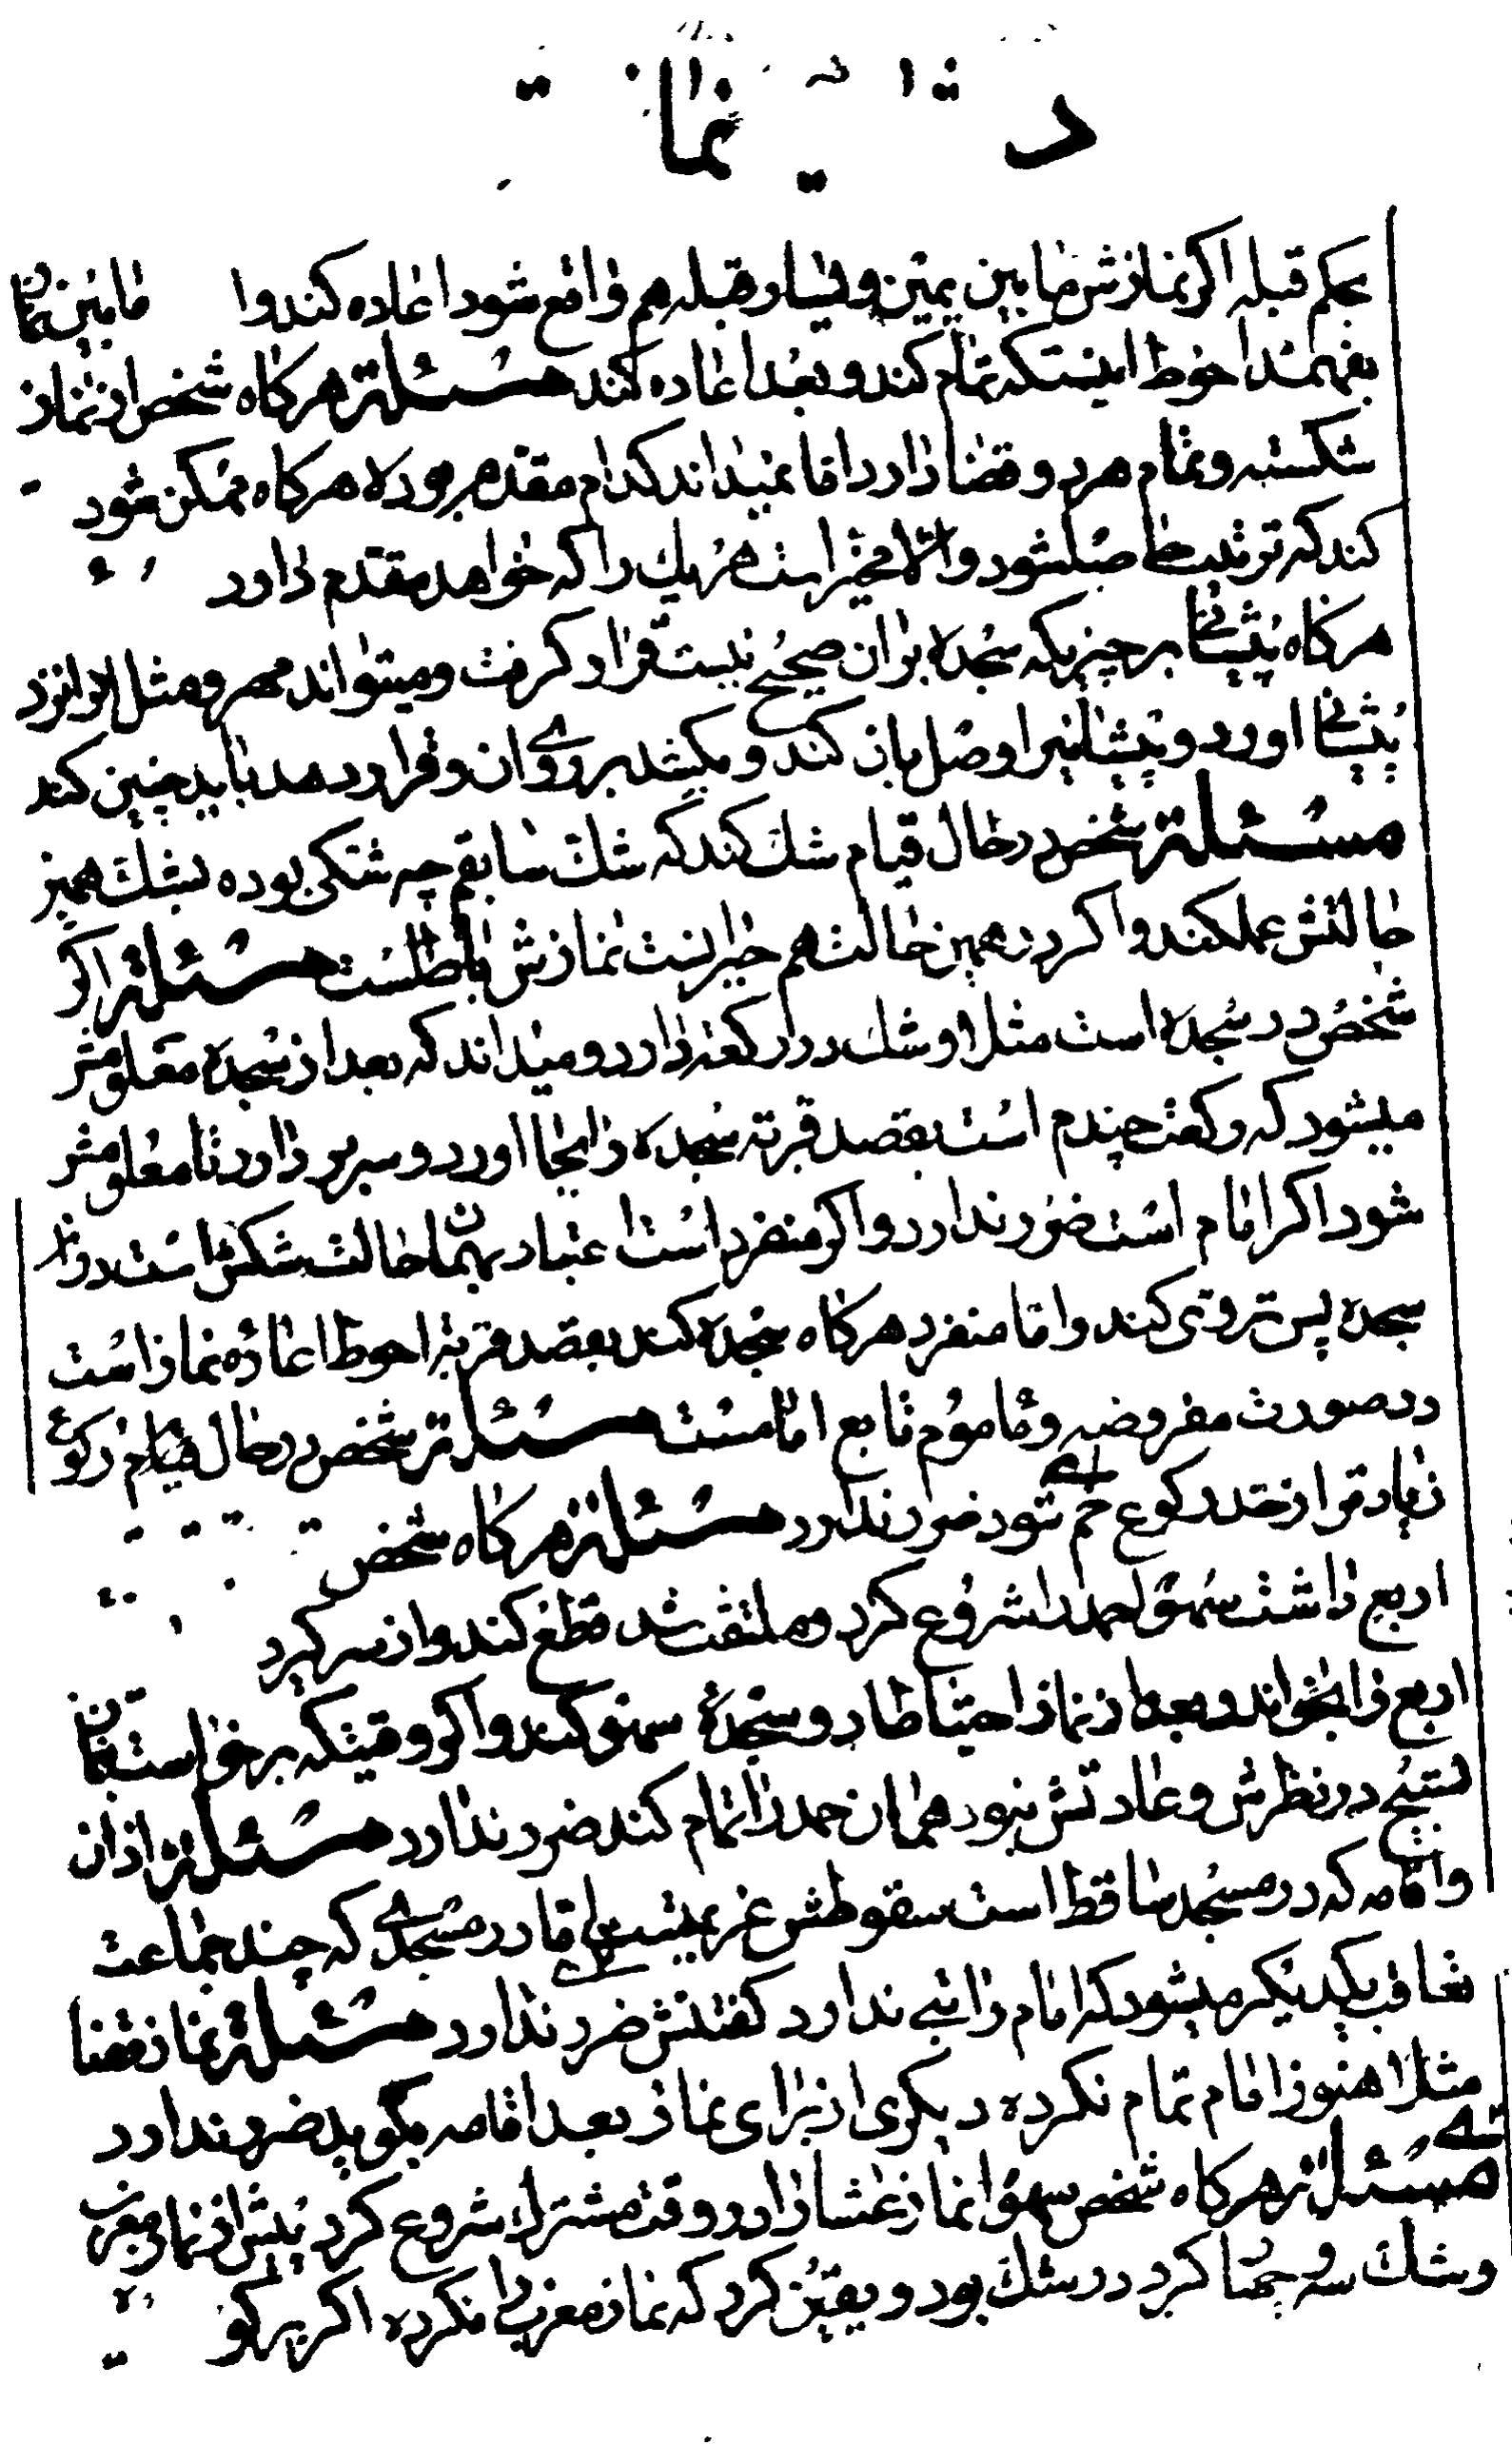 در نماز
بحکم قبله اکر نمازش ما بین یمین و یسار قبله هم واقع شود اعاده کند و ا ما بین نماز
بفهمد احوط اینستکه تمام کند و بعد اعاده کند مسئلة هرکاه شخص از نماز
شکسته و تمام هر دو قضا دارد اما نمیداند کدام مقدم بوده هرکاه ممکن شود
کند که ترتیب حاصلشود و الا مخیر است هر یك را که خواهد مقدم دارد
هرکاه پیشانی بر چیزیکه سجده بر ان صحیح نیست قرار کرفت و میتواند مهر و مثل انرا نزد
پیشانی اورد و پیشانیرا وصل بان کند و بکشد بروی ان و قرار دهد باید چنین کند
مسئلة شخص در حال قیام شك کند که شك سابقم چه شکی بوده بشك همین
حالتش عملکند و اکر در همین حالت هم حیرانست نمازش باطلست مسئلة اکر
شخص در سجده است مثل او شك در رکعة دارد و میداند که بعد از سجده معلومش
میشود که رکعت چندم است بقصد قربة سجده را بجا اورد و سر بر دارد تا معلومش
شود اکر امام است ضرر ندارد و اکر منفرد است اعتبار بهمان حالت شکش است در
سجده پس تروی کند و اما منفرد هرکاه سجده کند بقصد قربة احوط اعاده نماز است
در صورت مفروضه و ماموم تابع امامست مسئلة شخص در حال قیام از رکوع
زیادتر از حد رکوع خم شود ضرر ندارد مسئلة هرکاه شخص
اربع داشت سهوا حمد را شروع کرد و ملتفت شد قطع کند و از سر کیرد
اربع را بخواند و بعد از نماز احتیاطا دو سجده سهو کند و اکر وقتیکه برخواست
تسبیح در نظرش و عادتش نبود همان حمد را تمام کند ضرر ندارد مسئلة اذان
و اقامه که در مسجد ساقط است سقوطش عزیمت است اما در مسجدی که چند جماعت
تعاقب یکدیکر میشود که امام راتبی ندارد کفتنش ضرر ندارد مسئلة نماز قضا
مثلا هنوز امام تمام نکرده دیکری از برای نماز بعد اقامه بکوید ضرر ندارد
مسئلة هرکاه شخص سهوا نماز عشا را در وقت مشترك شروع کرد پیش از نماز مغرب
و شك سه و چهار کرد در شك بود و یقین کرد که نماز مغرب را نکرده اکر